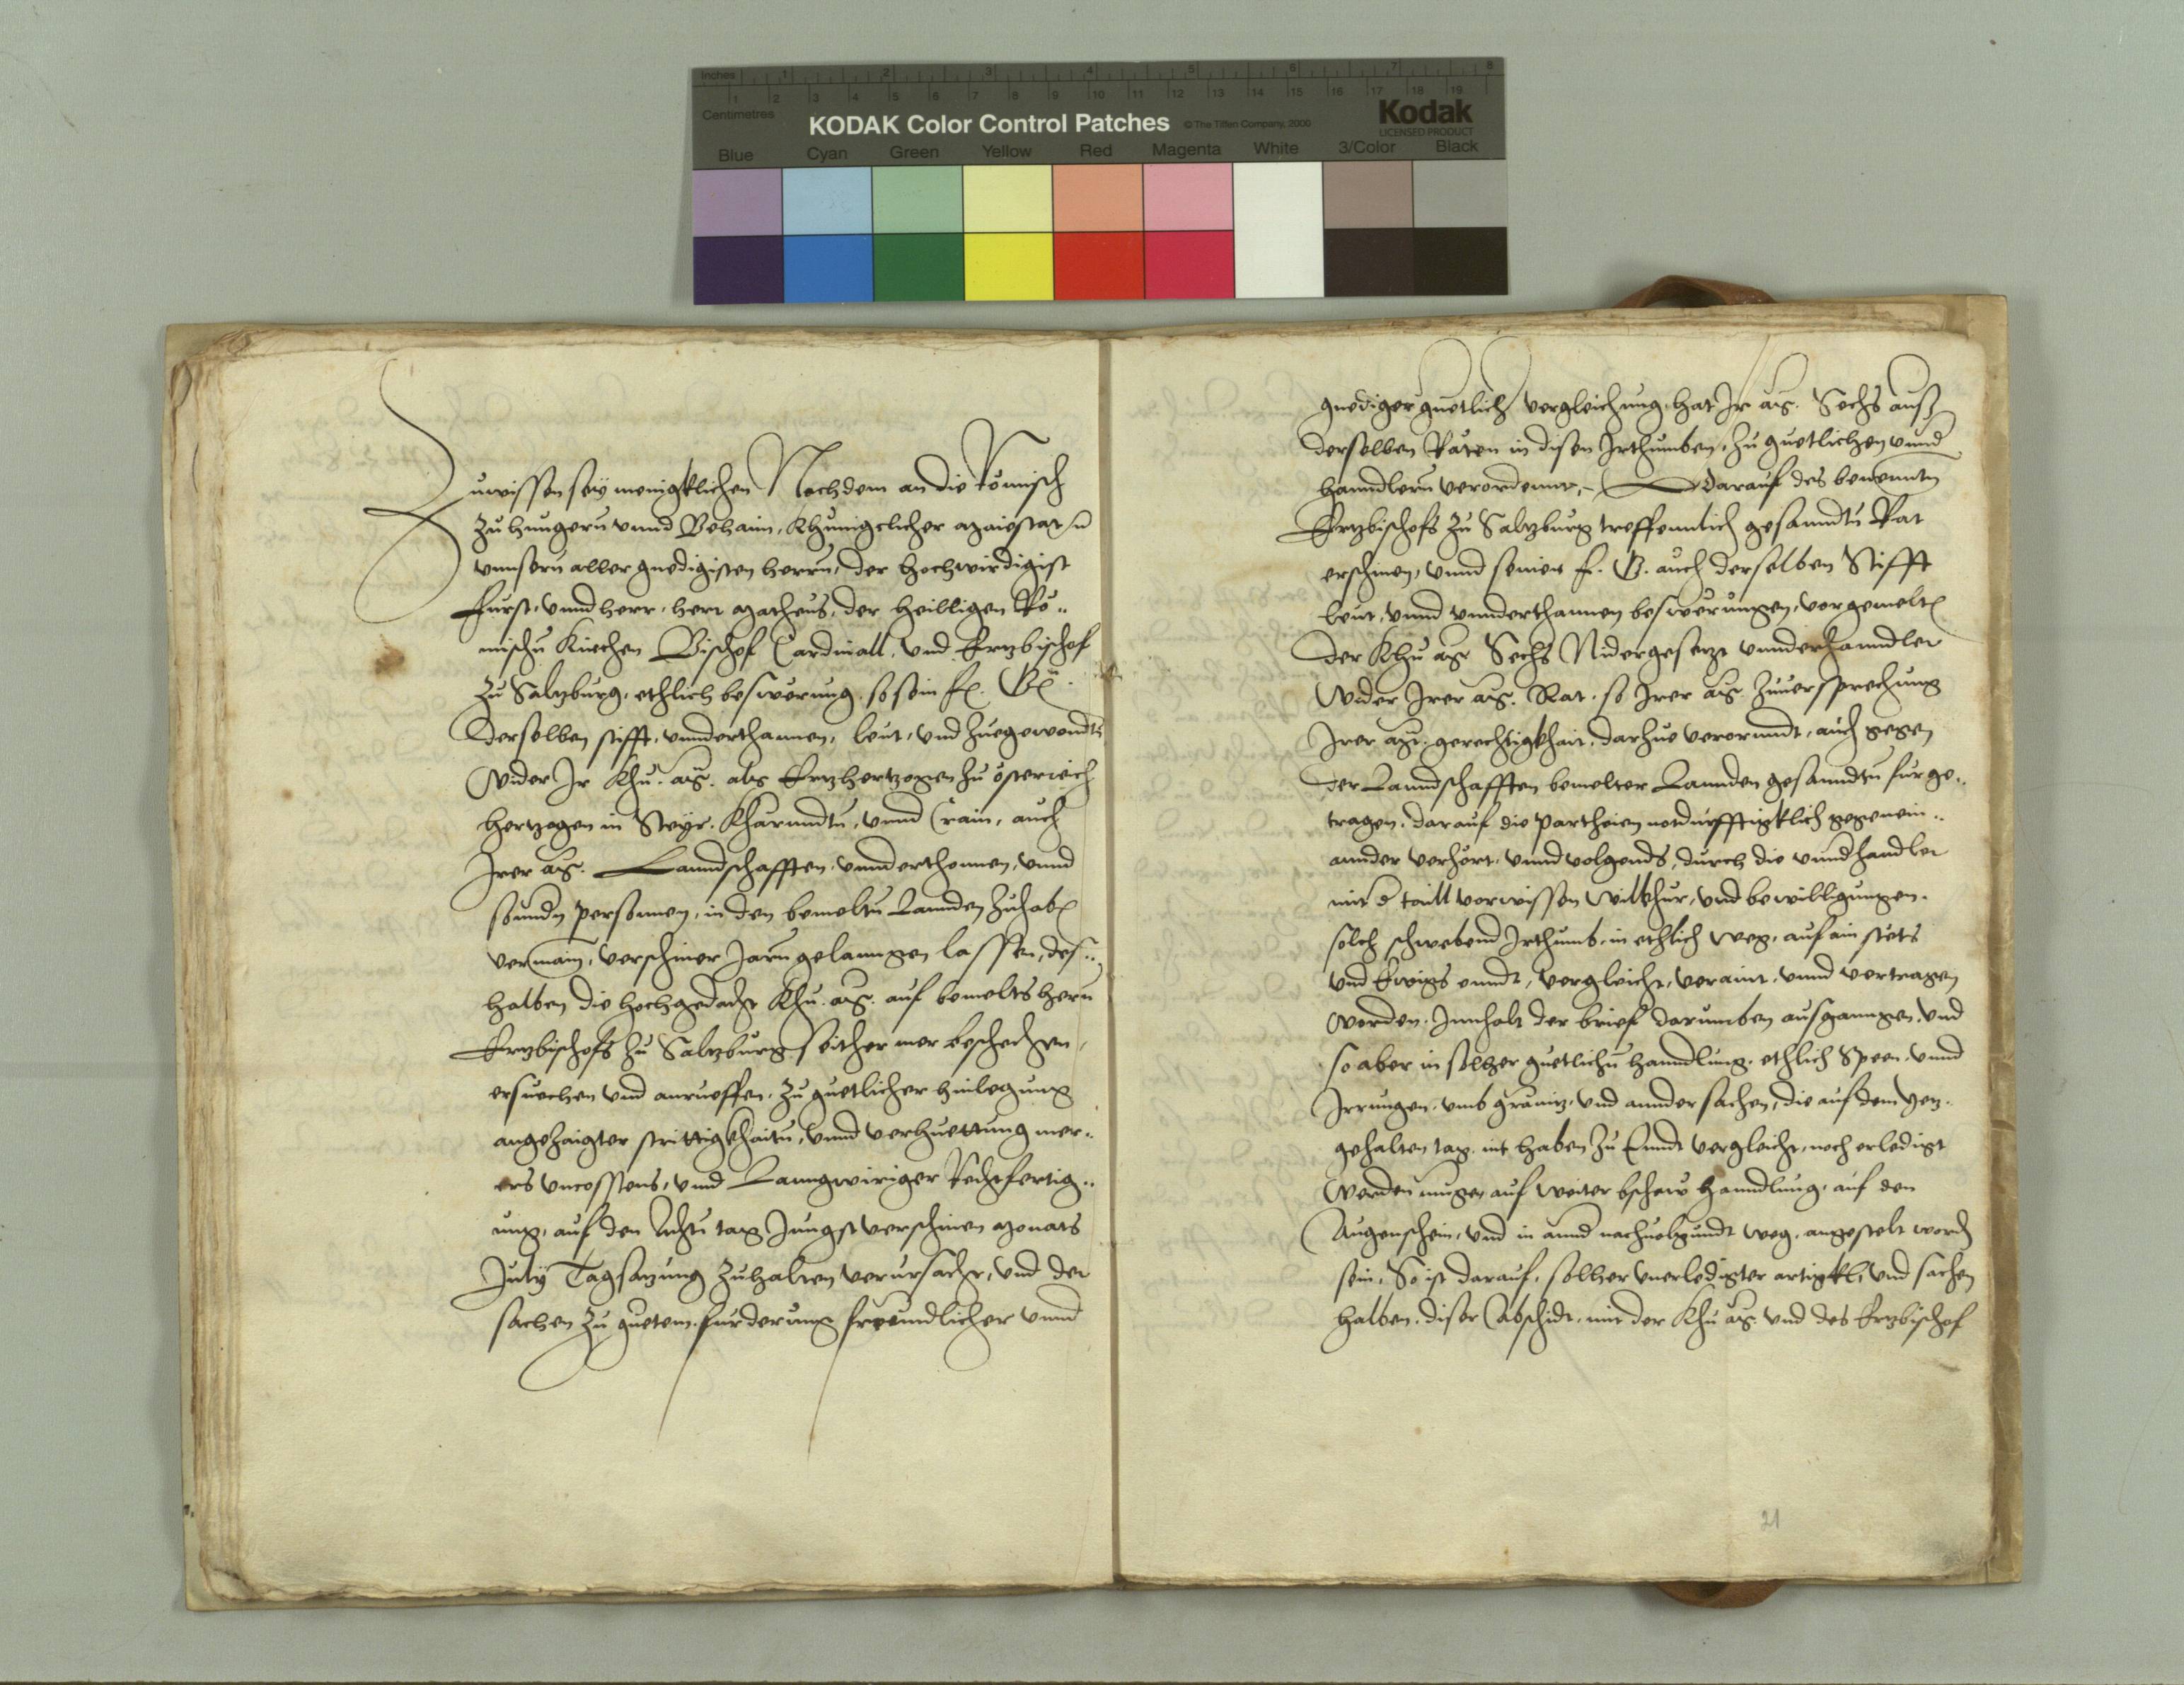 Inches 1 2 3 4 5 6 7 8
Centimetres 1 2 3 4 5 6 7 8 9 10 11 12 13 14 15 16 17 18 19
KODAK Color Control Patches © The Tiffen Company, 2000 Kodak
LICENSED PRODUCT
Blue Cyan Green Yellow Red Magenta White 3/Color Black
Zuwissen sey menigklichen Nachdem an die Römisch
zu hungern vnnd Behaim, Khunigclicher Maiestat
vnnsern aller gnedigisten herrn, der hochwirdigist
furst, vnnd herr, herr Matheus, der heilligen Rö¨
mischn Kirchen Bischof Cardinall, vnd Ertzbischof
zu Saltzburg, ethlich beswerung, so sein f. G.
derselben stifft, vnnderthannen, leut, vnd zuegewondtn
Wider Ir Khu. Mt. als Ertzhertzogen zu österreich
hertzogen in Steyr, Khärnndtn, vnnd Crain, auch
Irer Mt. Lanndschafften, vnnderthonnen, vnnd
sonndn personnen, in den bemeltn Lannden zuhabn
vermaint, verschiner Jarn gelanngen lassen, des¨
halben die hochgedacht Khu. Mt. auf bemelts herrn
Ertzbischofs zu Saltzburg seither mer beschechen,
ersuechen vnd anrueffen, zu guetlicher hinlegung
angezaigter strittigkhaitn, vnnd verhuettung mer¨
ers vncosstens, vnnd Lanngwiriger Rechtfertig¨
ung, auf den Achtn tag Jungst verschinen Monats
July Tagsatzung zuhalten verursacht, vnd der
sachen zu guetem furderung freundlicher vnnd
gnediger guetlich vergleichung, hat Ir Mt. Sechs auß
derselben Räten in disen Irthumben, zu guetlichen vnnd
hanndlern verordennt, darauf des benennten
Ertzbischofs zu Saltzburg treffennlich gesanndtn Rat
erschinen, vnnd seiner f. G. auch derselben Stifft
leut, vnnd vnnderthannen beswerungen, vor gemelten
der Khu Mt Sechs Nidergesetzt vnnderhanndler
Wider Irer Mt. Rat, so Irer Mt. zuuersprechung
Irer Mt. gerechtigkhait, darzue verornndt, auch gegen
der Lanndschafften bemelter Lannden gesanndtn furge¨
tragen, darauf die partheien notdurfftigklich gegenein¨
annder verhört, vnnd volgends, durch die vnndhandler
mit vorwissen Willkhur, vnd bewilligungen.
solch schwebend Irthumb, in ethlich weg, auf ain stets
vnd Ewigs enndt, vergleicht, veraint, vnnd vertragen
worden, Innhalt der brief darumben ausganngen, vnd
so aber in solher guetlichn hanndlung, ethlich Speen, vnnd
Irrungen, vmb gränitz, vnd annder sachen, die auf dem yetz
gehalten tag, nit haben zu Ennde vergleicht, noch erledigt
werden mugen, auf weiter bschaw hanndlung, auf den
Augenschein, vnd in annd nachuolgundt weg, angestelt wordn
sein, So ist darauf, solher vnerledigter artigkl, vnd sachen
halben, diser Abschidt, mit der Khu Mt. vnd des Ertzbischof
21